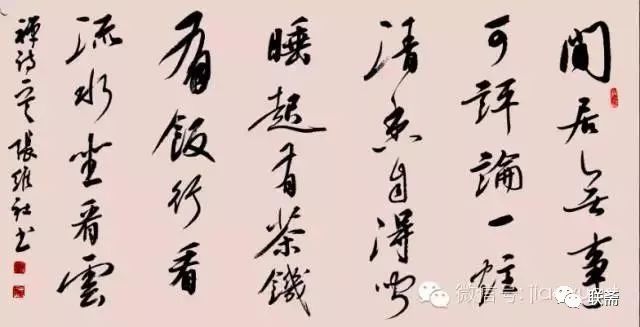 閒居無事
可評論一炷
清香自得聞
睡起有茶饑
有飯行看
流水坐看雲
禪詩一首 張維社書
微信号:
联斋